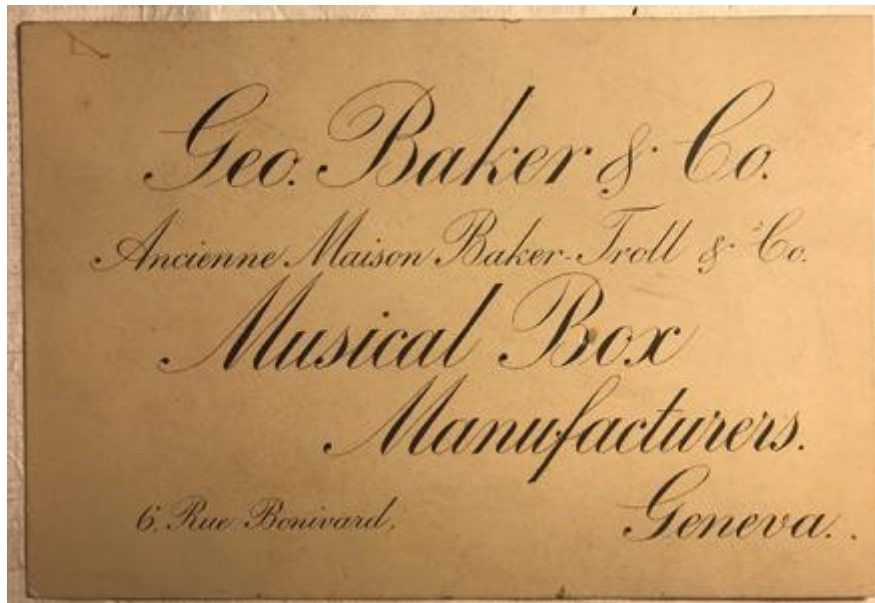 Geo. Baker & Co.
Ancienne Maison Baker-Troll & Co.
Musical Box
Manufacturers.
6, Rue Bonivard, Geneva.